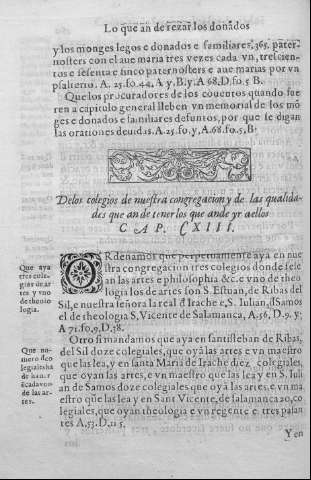 Lo que an de rezar los donados
y los monges legos e donados e familiares, 365. pater-
nosters con el aue maria tres vezes cada vn, trescien-
tos e sesenta e sinco paternosters e aue marias por vn
psalterio. A. 25. fo. 44. A y. B, y A 68. D. fo. 5 B.
Que los procuradores de los couentos quando fue
ren a capitulo general lleben vn memorial de los mõ
ges e donados e familiares defuntos, por que se digan
las orationes deuidas. A. 25. fo. y, A. 68. fo. 5, B.
De los colegios de nuestra congregacion y de las qualida-
des que an de tener los que ande yr a ellos
C A P. CXIII.
Que aya
tres cole-
gios de ar
tes y vno
de theolo
logia.
ORdenamos que perpetuamente aya en nue
stra congregacion tres colegios donde se le
an las artes e philosophia &c. e vno de theo
logia los de artes son S. Estuan, de Ribas del
Sil, e nuestra señora la real d Irache e, S. Iulian, d Samos
el de theologia S, Vicente de Salamanca, A. 56, D. 9. y;
A 71. fo, 9, D. 38.
Que nu-
mero d co
legiales ha
de hauer
e cada vno
de las ar-
tes.
Otro si mandamos que aya en santisteban de Ribas,
del Sil doze colegiales, que oyã las artes e vn maestro
que las lea, y en santa Maria de Irache diez colegiales,
que oyan las artes, e vn maestro que las lea y en S. Iuli
an de Samos doze colegiales que oyã las artes, e vn ma
estro que las lea y en Sant Vicente, de salamanca 20, co
legiales, que oyan theologia e vn regente e tres pasan
tes A. 53. D. 11 5,
Y en